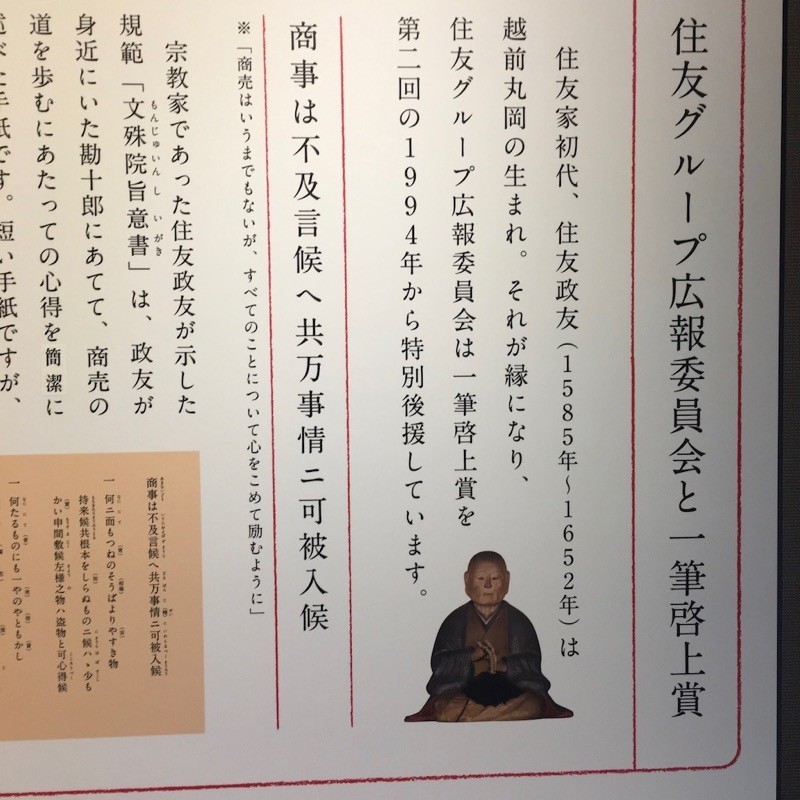 住友グループ広報委員会と一筆啓上賞
住友家初代、住友政友(1585年~1652年)は
越前丸岡の生まれ。それが縁になり、
住友グループ広報委員会は一筆啓上賞を
第二回の1994年から特別後援しています。
商事は不及言候へ共万事情ニ可被入候
※「商売はいうまでもないが、すべてのことについて心をこめて励むように」
宗教家であった住友政友が示した
規範「文殊院旨意書」は、政友が
もんじゅいんしいがき
身近にいた勘十郎にあてて、商売の
道を歩むにあたっての心得を簡潔に
述べた手紙です。短い手紙ですが、
商事は不及言候へ共万事情ニ可被入候
一 何ニ而もつねのそうばよりやすき物
持来候共根本をしらぬものニ候ハゝ少も
かい申間敷候左様之物ハ盗物と可心得候
一 何たるものにも一やのやともかし